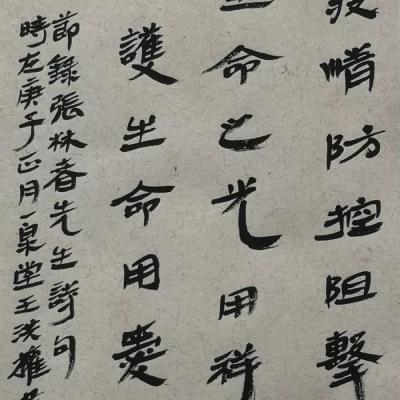 疫情防控阻擊
命之光用祥
護生命用愛
節錄張林春先生詩句
時在庚子正月一泉堂王洪權